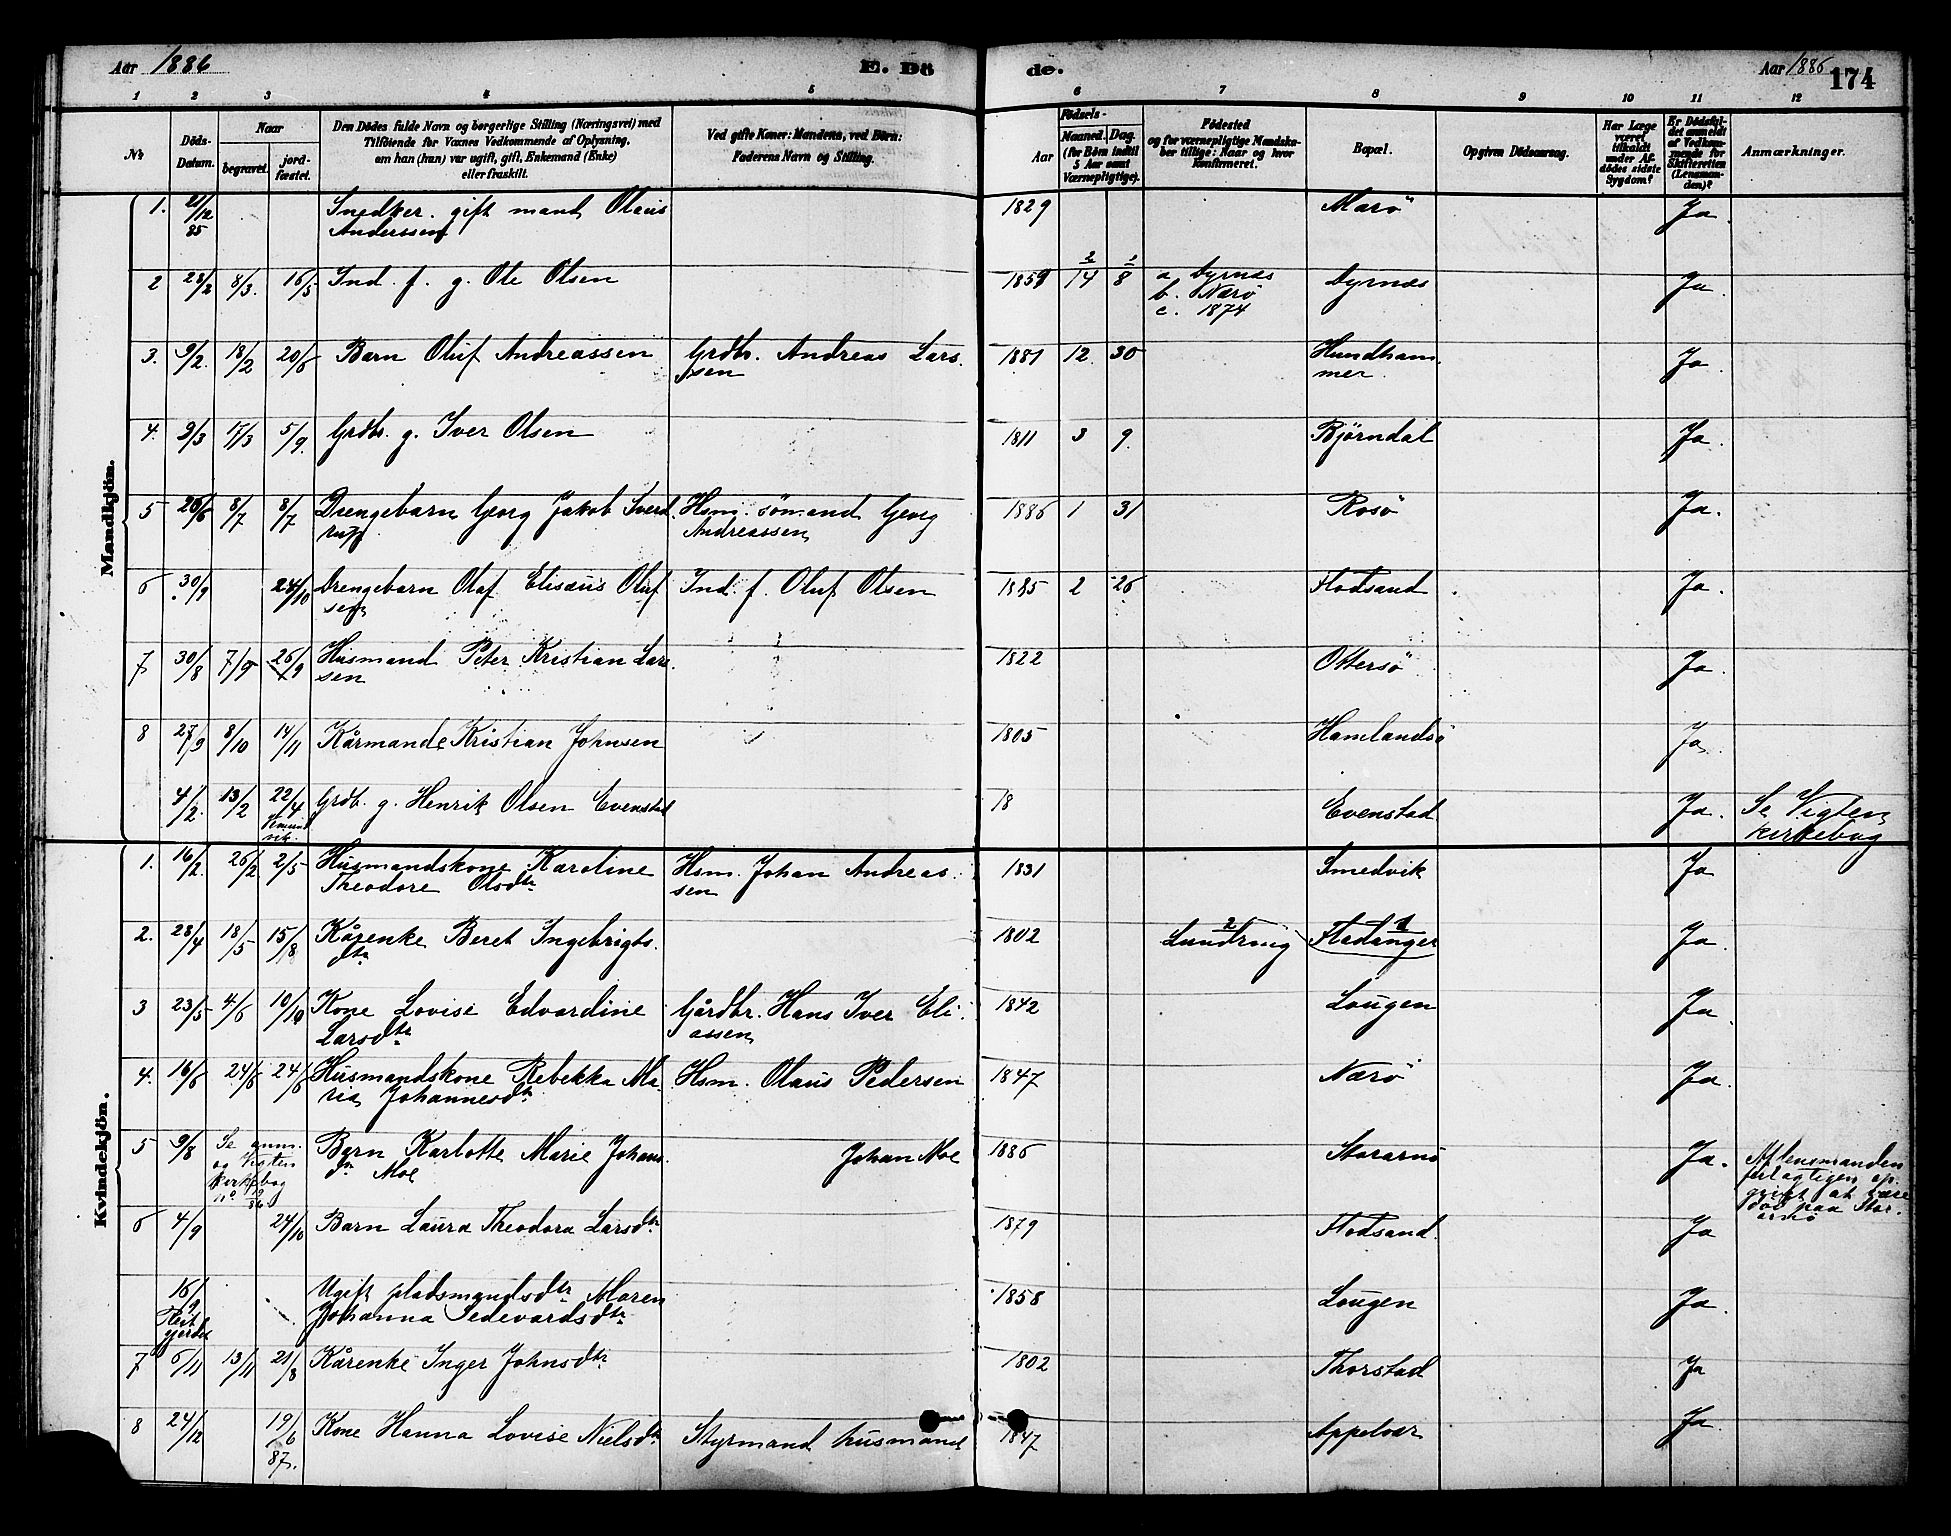 Aar 1886 E. Dö de. Aar 1886 174
1 2 3 4 5 6 7 8 9 10 11 12
No
Döds-Datum.
Naar
begravet.
jord-fæstet.
Den Dödes fulde Navn og borgerlige Stilling (Næringsvei) med
Tilföiende for Voxnes Vedkommende af Oplysning,
om han (hun) var ugift, gift, Enkemand (Enke)
eller fraskilt.
Ved gifte Koner: Mandens, ved Börn:
Faderens Navn og Stilling.
Födsels-
Aar
Maaned. Dag.
(for Börn indtil
5 Aar samt
Værnepligtige).
Födested
og for værnepligtige Mandska-
ber tillige: Naar og hvor
konfirmeret.
Bopæl.
Opgiven Dödsaarsag.
Har Læge
været
tilkaldt
under Af-
dödes sidste
Sygdom?
Er Dödsfal-
det anmeldt
af Vedkom-
mende for
Skifteretten
(Lensman-
den)?
Anmærkninger.
Mandkjön.
1. 21/12 85 Snedker. gift mand Olaus 1829 Marö Ja.
Anderssen
2 28/2 8/3. 16/5 Ind. f. g. Ole Olsen 1859 2/14 1/8 a. Dyrnes Dyrnes Ja.
b. Nærö
c. 1874
3. 9/2. 18/2 20/6 Barn Oluf Andreassen Grdbr. Andreas Lars. 1881 12. 30 Hundham- Ja.
sen mer.
4. 9/3 17/3 5/9. Grdbr. g. Iver Olsen 1811 3 9. Bjørndal Ja.
5 26/6 8/7 8/7 Drengebarn Georg Jakob Sverd. Hsm. sömand Georg 1886 1 31 Rosö Ja.
rup. Andreassen
6 30/9 24/10 Drengebarn Olaf Elisæus Oluf Ind. f. Oluf Olsen 1885 2 26 Flodsand. Ja.
sen
7 30/8 7/9 26/9 Husmand Peter Kristian Lars. 1822 Ottersö Ja.
sen
8 27/9 8/10 14/11 Kårmand Kristian Johnsen 1805 Hamlandsö Ja.
4/2. 13/2 22/4 Grdb. g. Henrik Olsen Evenstad 18 Evenstad Ja. Se Vigten
kirkebog
Kvindekjön.
1. 16/2. 26/2 2/5 Husmandskone Karoline Hsm. Johan Andreas. 1831 Smedvik Ja
Theodore Olsdtr sen
2. 28/4 18/5 15/8 Kårenke Beret Ingebrigts. 1802 Lundring 2 Fladanger 1 Ja.
dtr
3 23/5 4/6 10/10 Kone Lovise Edvardine Gårdbr. Hans Iver Eli. 1842 Lougen Ja.
Larsdtr assen
4. 16/6 24/6 24/6 Husmandskone Rebekka Ma Hsm. Olaus Pedersen 1847 Nærö Ja.
ria Johannesdtr
5 9/8 Se anm. Barn Karlotte Marie Johans. Johan Moe 1886 Storarnö Ja. Af lensmanden
og Vigten dtr Moe
kirkebog
no
at være
död paa Stor.
arnö
6 4/9 24/10 Barn Laura Theodora Larsdtr 1879 Flodsand. Ja
16/9 Ugift pladsmandsdtr Maren 1858 Lougen Ja.
Johanna Sedevardsdtr
7 6/11 13/11 21/8 Kårenke Inger Johnsdtr 1802 Thorstad Ja
8 24/12 19/6 87. Kone Hanna Lovise Nielsdtr Styrmand husmand 1847 Appelvær Ja.